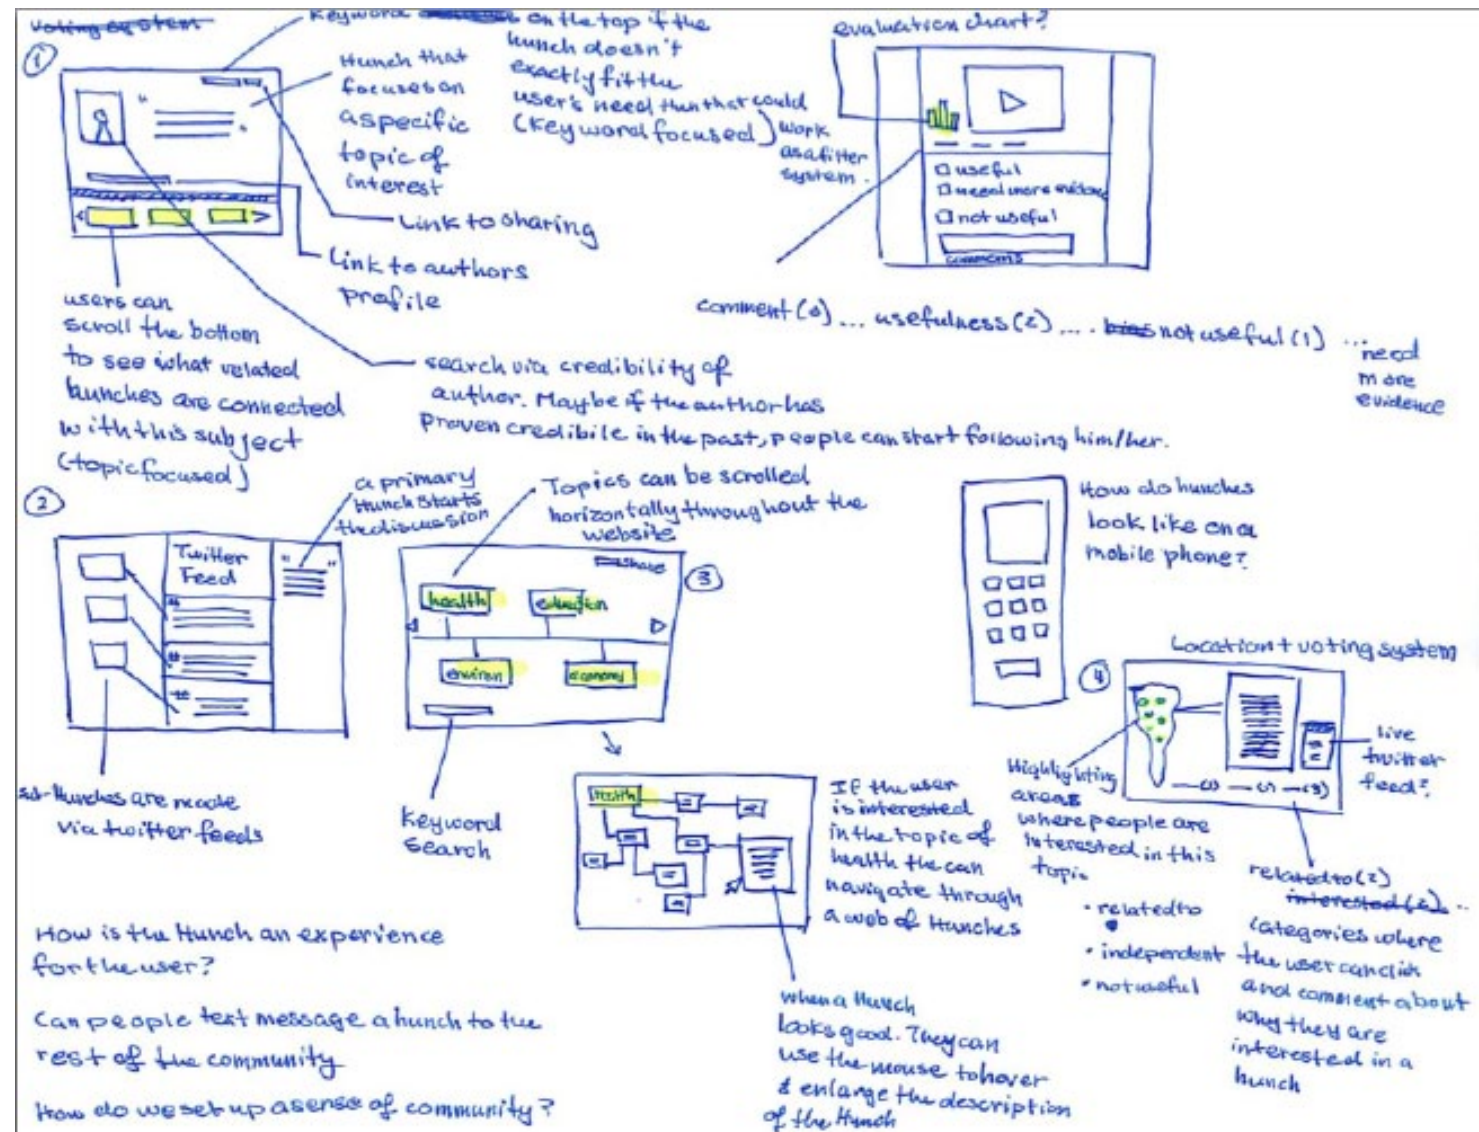 Voting system
①
Keyword on the top if the
hunch doesn't
exactly fit the
user's need then that could
(Keyword focused) work
as a filter
system.
Hunch that
focuses on
a specific
topic of
interest
Link to sharing
Link to authors
profile
users can
scroll the bottom
to see what related
hunches are connected
with this subject
(topic focused)
search via credibility of
author. Maybe if the author has
proven credibile in the past, people can start following him/her.
evaluation chart?
useful
need more evidence
not useful
comments
comment (0) ... usefulness (2) .... not useful (1) ...
need
more
evidence
②
a primary
Hunch starts
the discussion
Twitter
Feed
Hunches are made
via twitter feeds
Topics can be scrolled
horizontally throughout the
website
③
share
health
education
environ
economy
Keyword
search
health
If the user
is interested
in the topic of
health the can
navigate through
a web of Hunches
when a Hunch
looks good. They can
use the mouse to hover
& enlarge the description
of the Hunch
How do hunches
look like on a
mobile phone?
Location + voting system
④
Highlighting
areas
where people are
interested in this
topic
• related to
• independent
• not useful
live
twitter
feed?
related to (2)
interested (2)...
categories where
the user can click
and comment about
why they are
interested in a
hunch
How is the Hunch an experience
for the user?
Can people text message a hunch to the
rest of the community
How do we set up a sense of community?